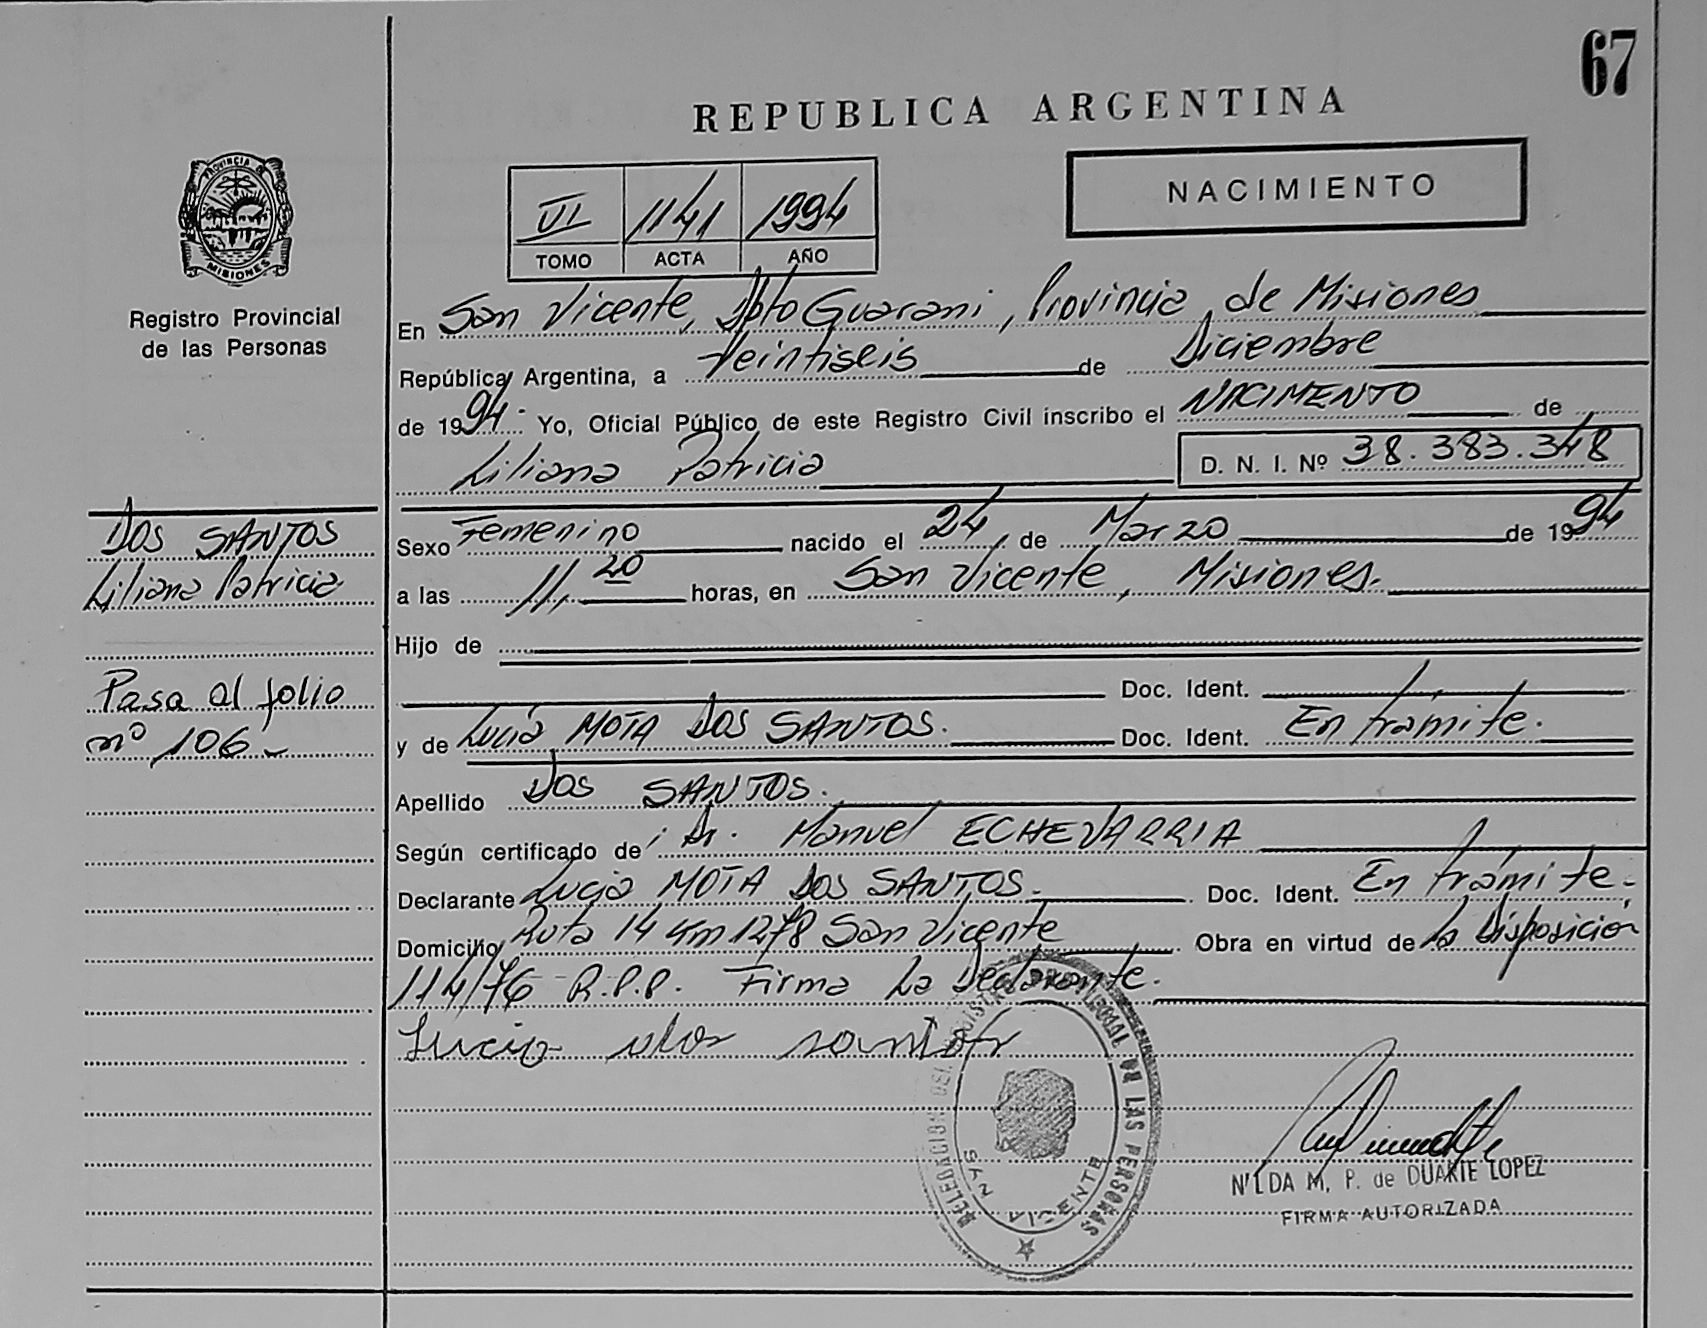 67
REPUBLICA ARGENTINA
NACIMIENTO
VI 1141 1994
TOMO ACTA AÑO
PROVINCIA DE
MISIONES
Registro Provincial
de las Personas
En San Vicente, Dpto Guarani, Provincia de Misiones
República Argentina, a Veintiseis de Diciembre
de 1994.- Yo, Oficial Público de este Registro Civil inscribo el NACIMENTO de
Liliana Patricia D. N. I. Nº 38.383.348
DOS SANTOS
Liliana Patricia
Pasa al folio
nº 106.-
Sexo Femenino nacido el 24 de Marzo de 1994
a las 11,20 horas, en San Vicente, Misiones.
Hijo de
Doc. Ident.
y de Lucia MOTA DOS SANTOS. Doc. Ident. En trámite.
Apellido DOS SANTOS.
Según certificado de: Dr. Manuel ECHEVARRIA
Declarante Lucia MOTA DOS SANTOS. Doc. Ident. En trámite.-
Domicilio Ruta 14 Km 1278 San Vicente Obra en virtud de la Disposición
114/76 R.P.P. Firma La Declarante.
Lucia dos santos
DELEGACION DEL REGISTRO PROVINCIAL DE LAS PERSONAS
SAN VICENTE
NILDA M. P. de DUARTE LOPEZ
FIRMA AUTORIZADA